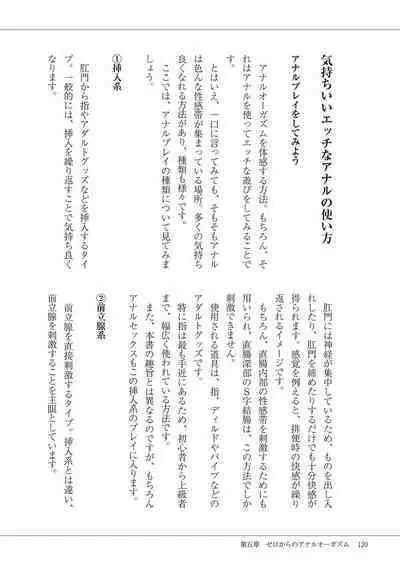 気持ちいいエッチなアナルの使い方
アナルプレイをしてみよう
アナルオーガズムを体感する方法。もちろん、そ
れはアナルを使ってエッチな遊びをしてみることで
す。
とはいえ、一口に言ってみても、そもそもアナル
は色んな性感帯が集まっている場所。多くの気持ち
良くなれる方法があり、種類も様々です。
ここでは、アナルプレイの種類について見てみま
しょう。
①挿入系
肛門から指やアダルトグッズなどを挿入するタイ
プ。一般的には、挿入を繰り返すことで気持ち良く
なります。
肛門には神経が集中しているため、ものを出し入
れしたり、肛門を締めたりするだけでも十分快感が
得られます。感覚を例えると、排便時の快感が繰り
返されるイメージです。
もちろん、直腸内部の性感帯を刺激するためにも
用いられ、直腸深部のS字結腸は、この方法でしか
刺激できません。
使用される道具は、指、ディルドやバイブなどの
アダルトグッズです。
特に指は最も手近にあるため、初心者から上級者
まで、幅広く使われている方法です。
また、本書の趣旨とは異なるのですが、もちろん
アナルセックスもこの挿入系のプレイに入ります。
②前立腺系
前立腺を直接刺激するタイプ。挿入系とは違い、
前立腺を刺激することを主眼としています。
第五章 ゼロからのアナルオーガズム 120